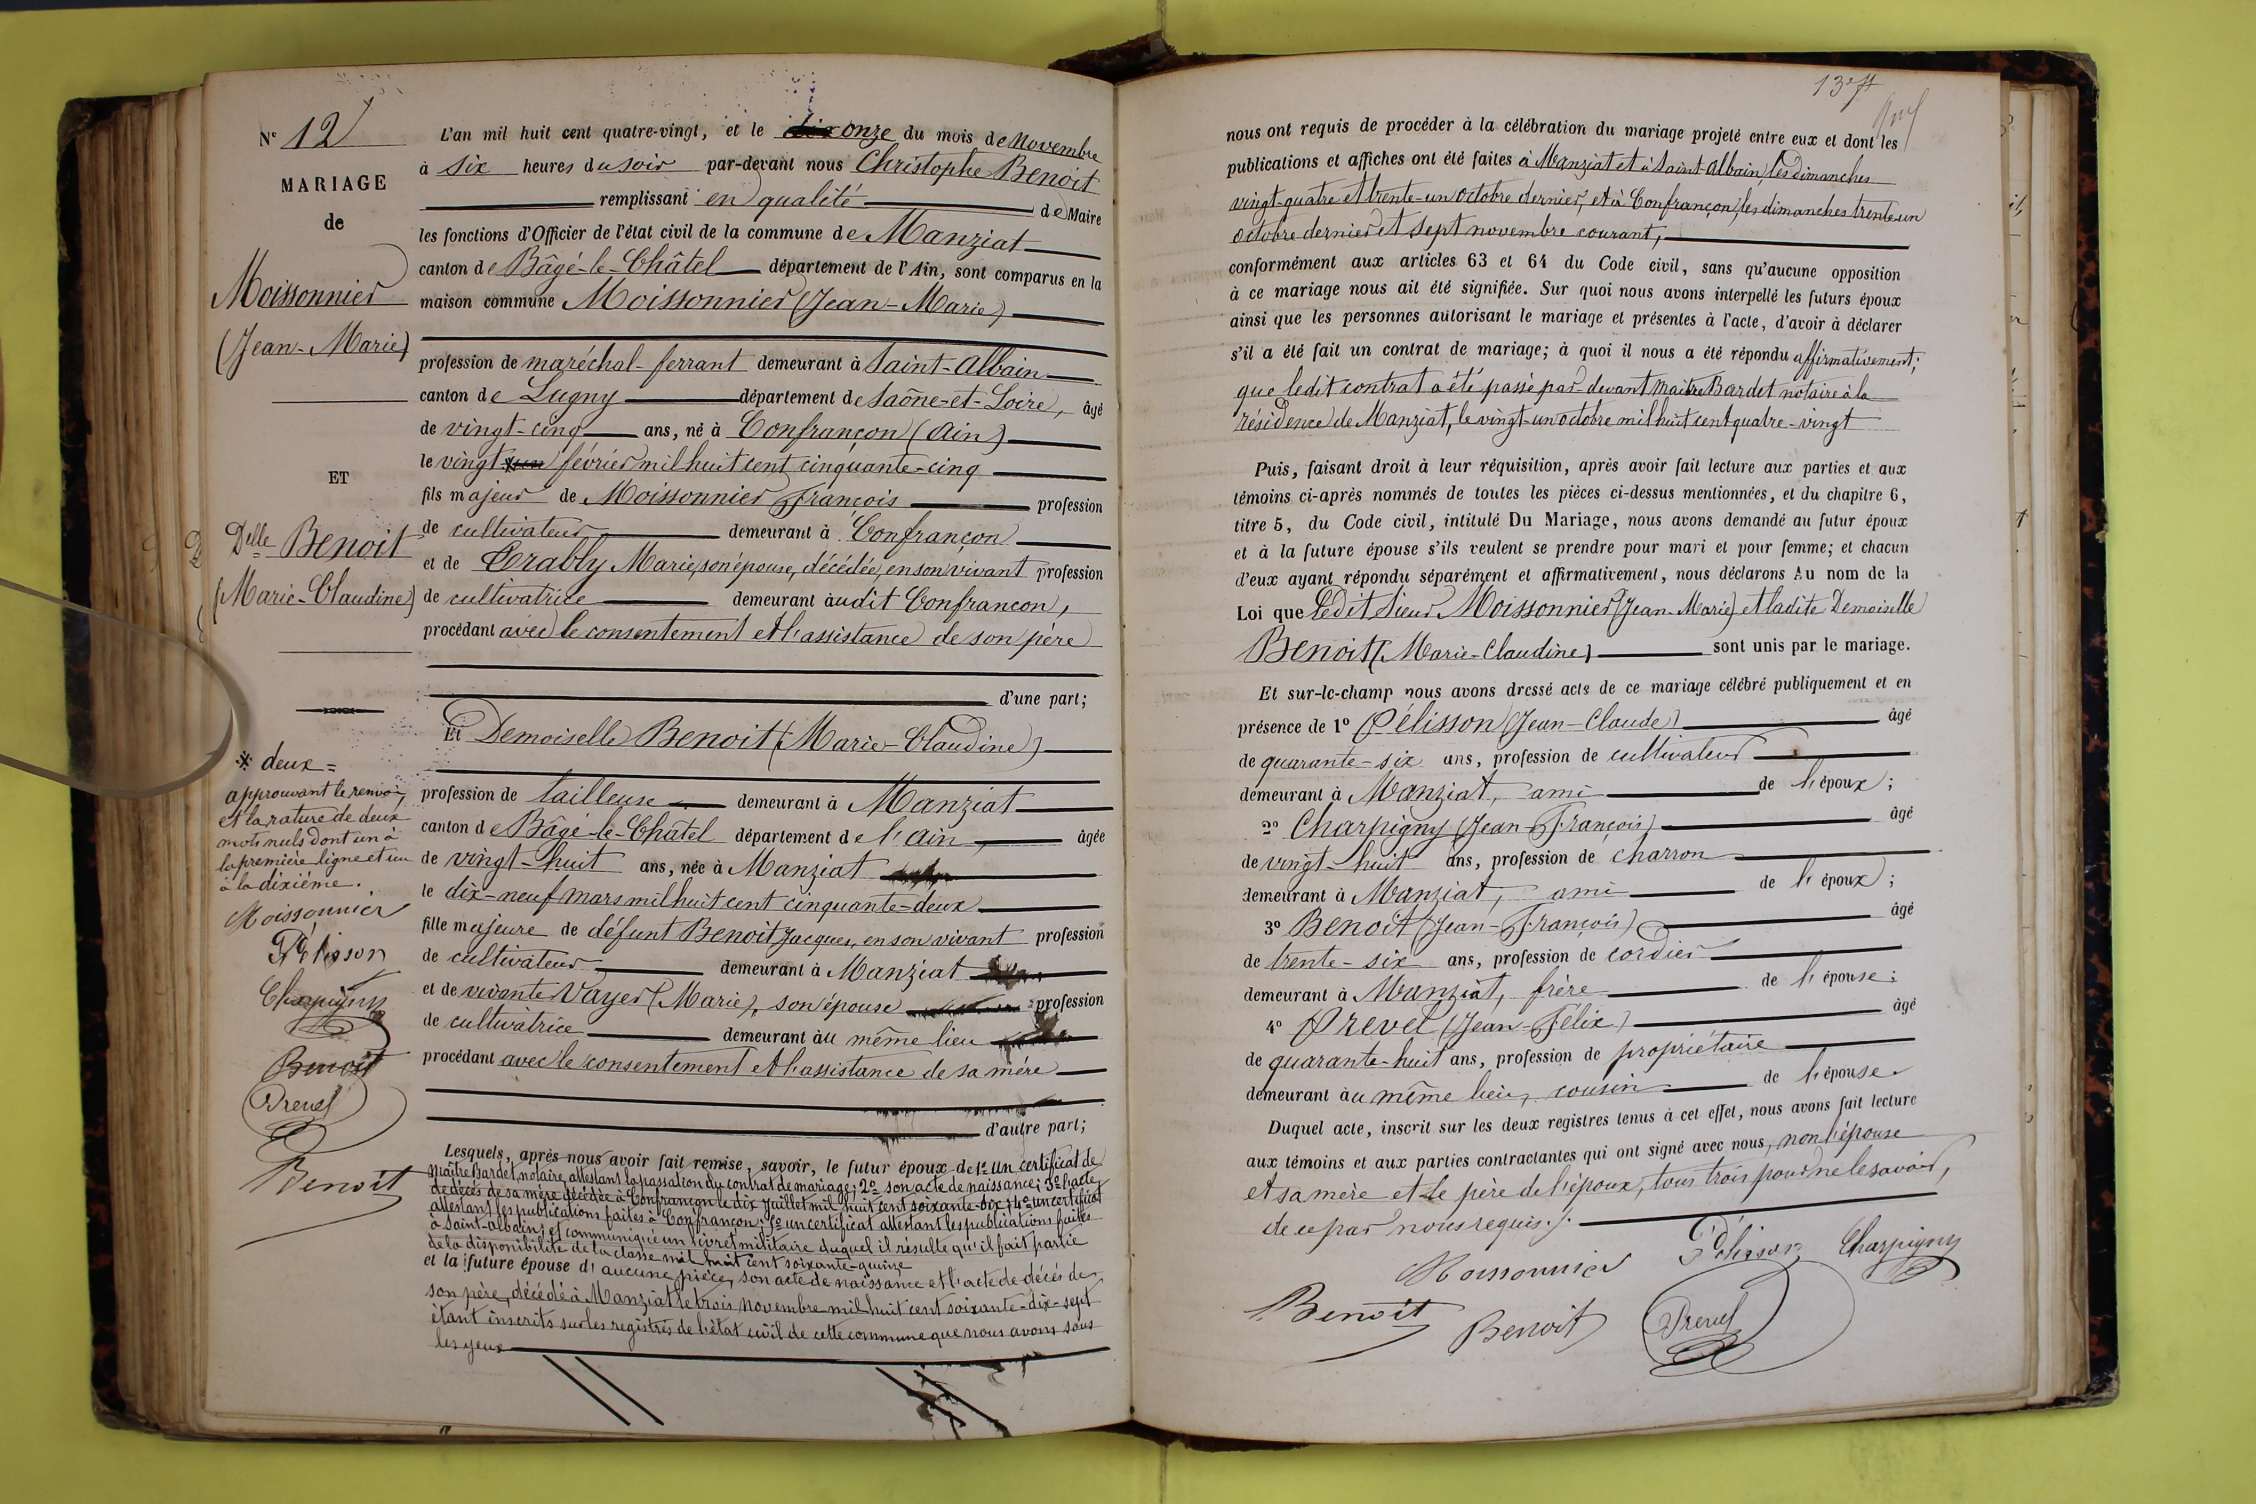 N° 12
MARIAGE
de
Moissonnier
(Jean-Marie)
ET
Delle Benoit
(Marie-Claudine)
* deux =
approuvant le renvoi,
et la rature de deux
mots nuls dont un à
la première ligne et un
à la dixième.
Moissonnier
Pélisson
Charpigny
Benoit
Prevel
Benoit
L'an mil huit cent quatre-vingt, et le dix onze du mois de Novembre
à six heures du soir par-devant nous Christophe Benoit
remplissant en qualité de Maire
les fonctions d'Officier de l'état civil de la commune de Manziat
canton de Bâgé-le-Châtel département de l'Ain, sont comparus en la
maison commune Moissonnier (Jean-Marie)
profession de maréchal-ferrant demeurant à Saint-Albain
canton de Lugny département de Saône-et-Loire, âgé
de vingt-cinq ans, né à Confrançon (Ain)
le vingt * février mil huit cent cinquante-cinq
fils majeur de Moissonnier François profession
de cultivateur demeurant à Confrançon
et de Crably Marie, son épouse, décédée, en son vivant profession
de cultivatrice demeurant audit Confrançon,
procédant avec le consentement et l'assistance de son père
d'une part;
Et Demoiselle Benoit (Marie-Claudine)
profession de tailleuse demeurant à Manziat
canton de Bâgé-le-Châtel département de l'ain, âgée
de vingt-huit ans, née à Manziat
le dix-neuf mars mil huit cent cinquante-deux
fille majeure de défunt Benoit Jacques, en son vivant profession
de cultivateur demeurant à Manziat
et de vivante Vayer (Marie), son épouse profession
de cultivatrice demeurant au même lieu
procédant avec le consentement et l'assistance de sa mère
d'autre part;
Lesquels, après nous avoir fait remise, savoir, le futur époux de 1° un certificat de
maître Bardet, notaire, attestant la passation du contrat de mariage; 2° son acte de naissance; 3° l'acte
de décès de sa mère décédée à Confrançon le dix Juillet mil huit cent soixante-dix; 4° un certificat
attestant les publications faites à Confrançon; 5° un certificat attestant les publications faites
à Saint-Albain; et communiqué un livret militaire duquel il résulte qu'il fait partie
de la disponibilité de la classe mil huit cent soixante-quinze
et la future épouse d'aucune pièce, son acte de naissance et l'acte de décès de
son père, décédé à Manziat le trois novembre mil huit cent soixante-dix-sept
étant inscrits sur les registres de l'état civil de cette commune que nous avons sous
les yeux
nous ont requis de procéder à la célébration du mariage projeté entre eux et dont les
publications et affiches ont été faites à Manziat et à Saint-Albain, les dimanches
vingt-quatre et trente-un octobre dernier, et à Confrançon, les dimanches trente-un
octobre dernier et sept novembre courant,
conformément aux articles 63 et 64 du Code civil, sans qu'aucune opposition
à ce mariage nous ait été signifiée. Sur quoi nous avons interpellé les futurs époux
ainsi que les personnes autorisant le mariage et présentes à l'acte, d'avoir à déclarer
s'il a été fait un contrat de mariage; à quoi il nous a été répondu affirmativement;
que ledit contrat a été passé par devant maître Bardet notaire à la
résidence de Manziat, le vingt-un octobre mil huit cent quatre-vingt
Puis, faisant droit à leur réquisition, après avoir fait lecture aux parties et aux
témoins ci-après nommés de toutes les pièces ci-dessus mentionnées, et du chapitre 6,
titre 5, du Code civil, intitulé Du Mariage, nous avons demandé au futur époux
et à la future épouse s'ils veulent se prendre pour mari et pour femme; et chacun
d'eux ayant répondu séparément et affirmativement, nous déclarons Au nom de la
Loi que Ledit Sieur Moissonnier (Jean-Marie) et ladite Demoiselle
Benoit (Marie-Claudine) sont unis par le mariage.
Et sur-le-champ nous avons dressé acte de ce mariage célébré publiquement et en
présence de 1° Pélisson (Jean-Claude) âgé
de quarante-six ans, profession de cultivateur
demeurant à Manziat, ami de l'époux;
2° Charpigny (Jean-François) âgé
de vingt-huit ans, profession de charron
demeurant à Manziat, ami de l'époux;
3° Benoit (Jean-François) âgé
de trente-six ans, profession de cordier
demeurant à Manziat, frère de l'épouse;
4° Prevel (Jean-Félix) âgé
de quarante-huit ans, profession de propriétaire
demeurant au même lieu, cousin de l'épouse
Duquel acte, inscrit sur les deux registres tenus à cet effet, nous avons fait lecture
aux témoins et aux parties contractantes qui ont signé avec nous, non l'épouse
et sa mère et le père de l'époux, tous trois pour ne le savoir,
de ce par nous requis./.
Moissonnier Pélisson Charpigny
Benoit Benoit Prevel